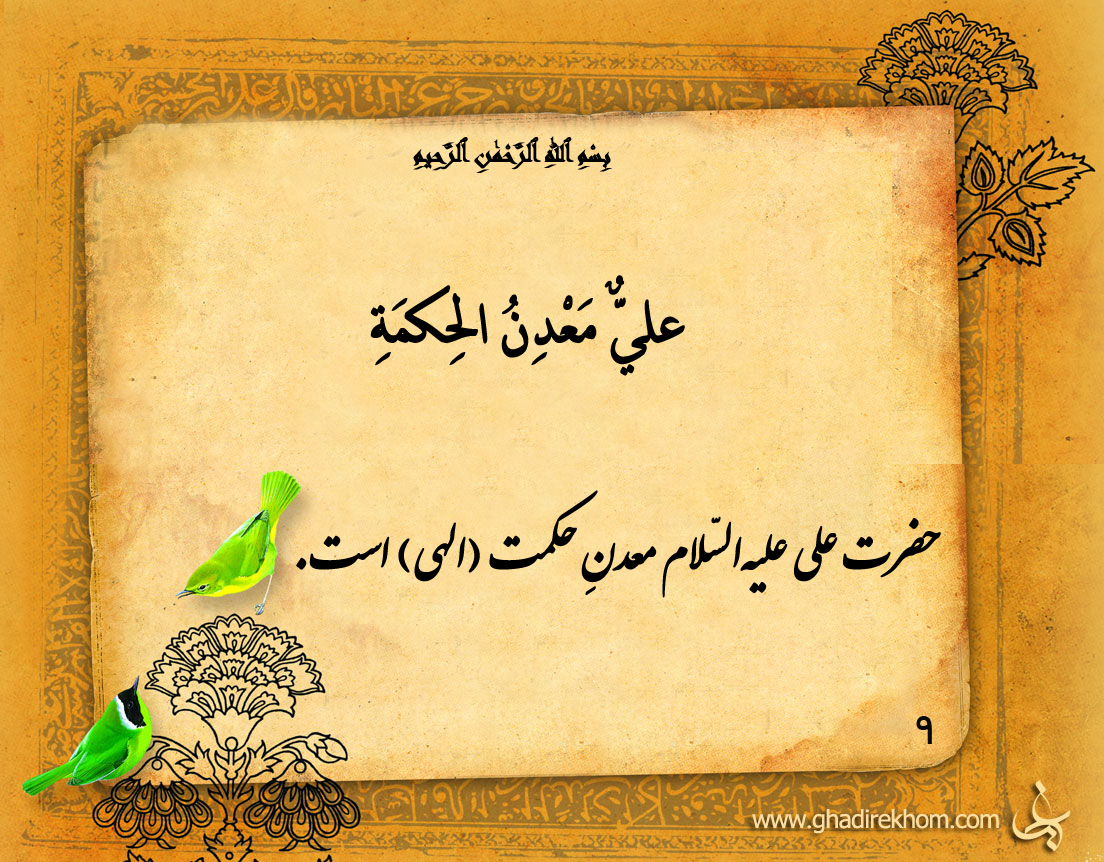 بِسْمِ ٱللَّهِ ٱلرَّحْمَٰنِ ٱلرَّحِيمِ
عليٌّ مَعْدِنُ الحِكمَةِ
حضرت علی علیه‌السّلام معدنِ حکمت (الهی) است.
۹
www.ghadirekhom.com